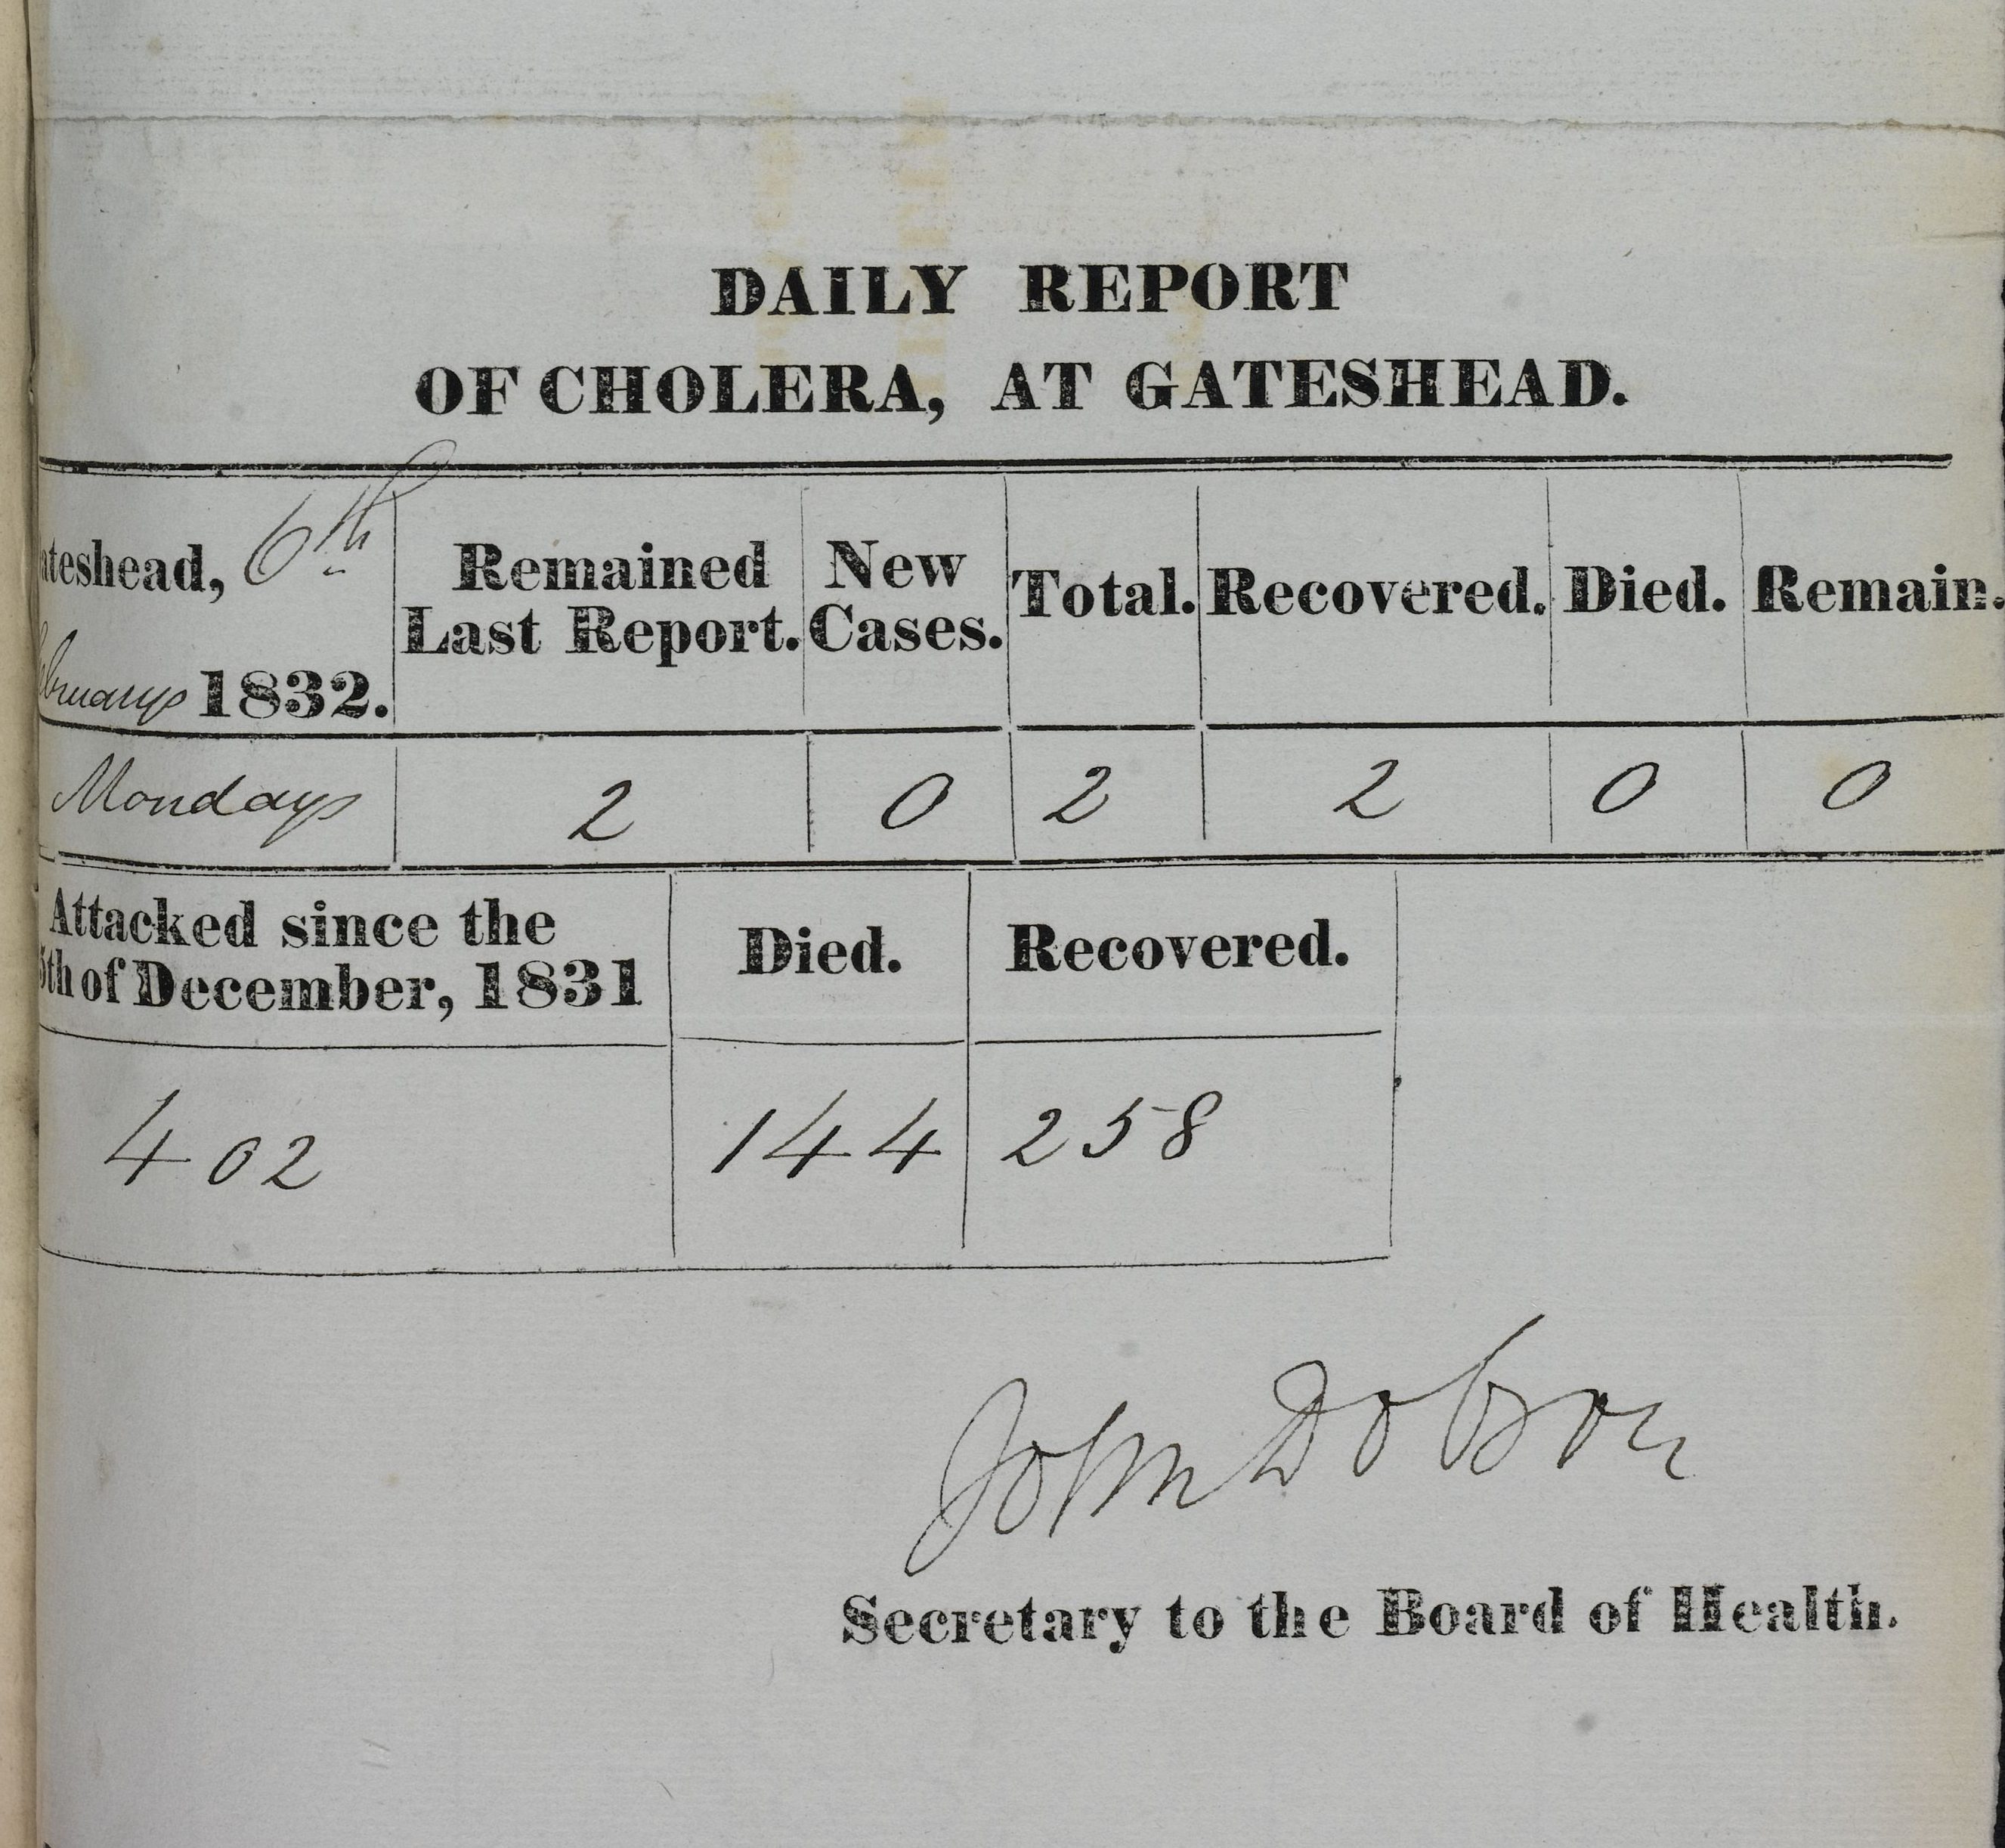 DAILY REPORT
OF CHOLERA, AT GATESHEAD.
ateshead, 6th
ebruary 1832.
Remained Last Report.
New Cases.
Total.
Recovered.
Died.
Remain.
Monday 2 0 2 2 0 0
Attacked since the
5th of December, 1831
Died.
Recovered.
402 144 258
John Dobson
Secretary to the Board of Health.